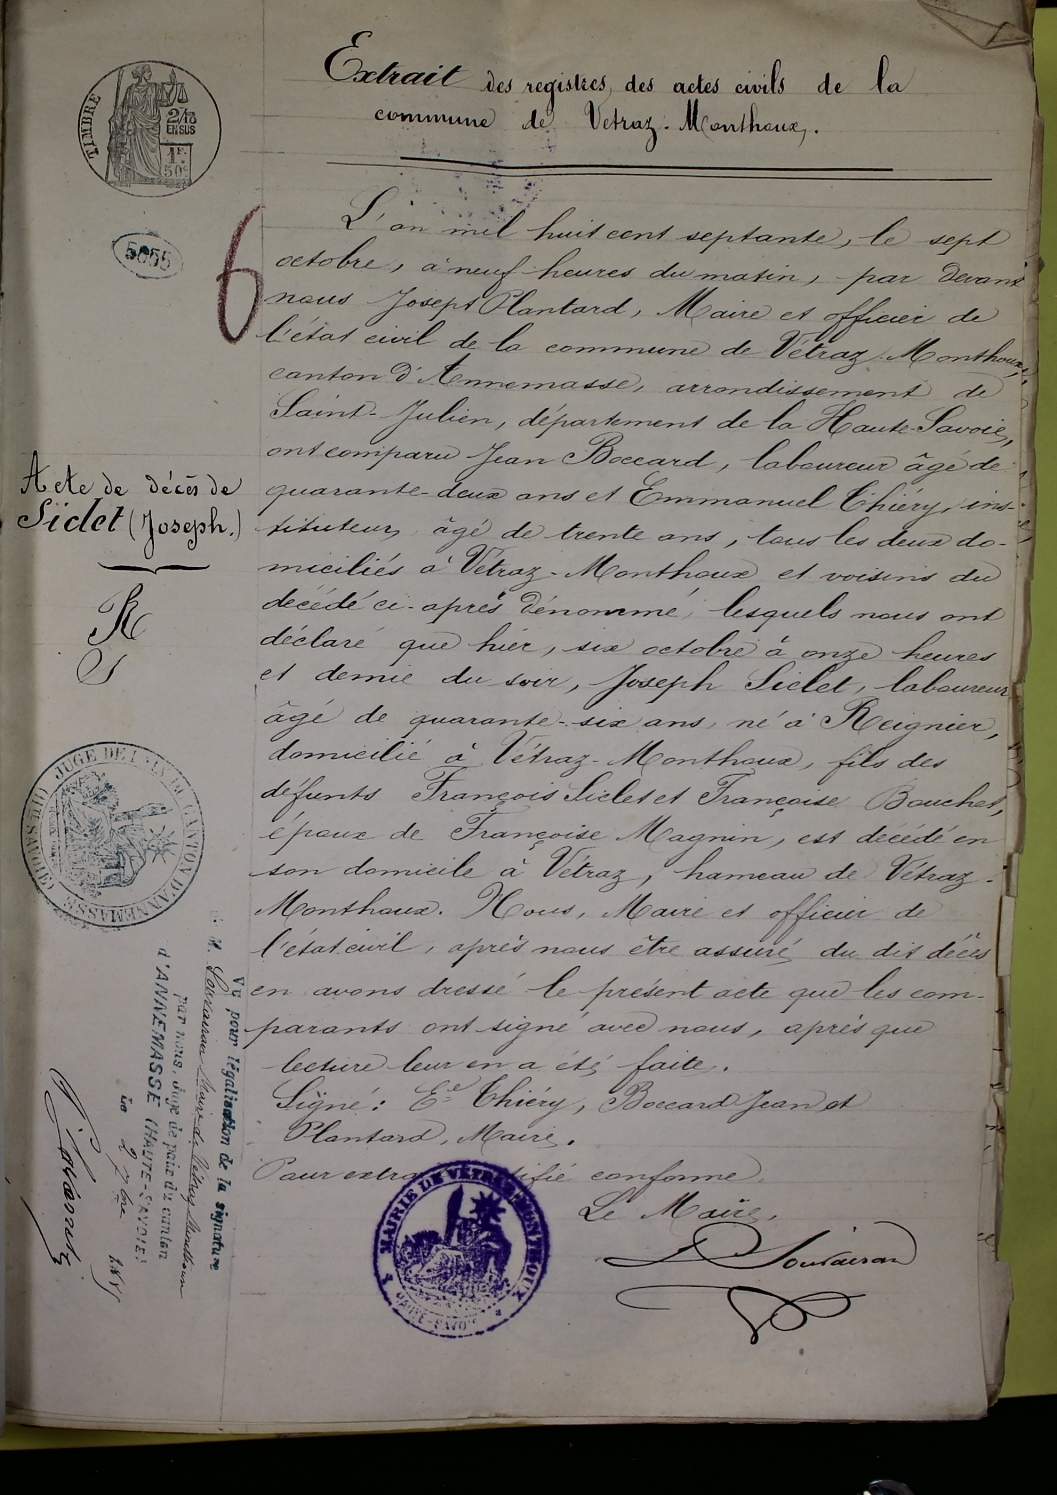 Extrait des registres des actes civils de la
commune de Vetraz-Monthoux.
TIMBRE
2/10
EN SUS
1F.
50c
5055
6
L'an mil huit cent septante, le sept
octobre, à neuf heures du matin, par devant
nous Joseph Plantard, Maire et officier de
l'état civil de la commune de Vétraz-Monthoux,
canton d'Annemasse, arrondissement de
Saint-Julien, département de la Haute-Savoie,
ont comparu Jean Boccard, laboureur âgé de
quarante-deux ans et Emmanuel Thiéry, ins-
tituteur, âgé de trente ans, tous les deux do-
miciliés à Vétraz-Monthoux et voisins du
décédé ci-après dénommé, lesquels nous ont
déclaré que hier, six octobre à onze heures
et demie du soir, Joseph Siclet, laboureur
âgé de quarante-six ans, né à Reignier,
domicilié à Vétraz-Monthoux, fils des
défunts François Siclet et Françoise Bouchet,
époux de Françoise Magnin, est décédé en
son domicile à Vétraz, hameau de Vétraz-
Monthoux. Nous, Maire et officier de
l'état civil, après nous être assuré du dit décès
en avons dressé le présent acte que les com-
parants ont signé avec nous, après que
lecture leur en a été faite.
Signé: El Thiéry, Boccard Jean et
Plantard, Maire.
Pour extrait certifié conforme,
Le Maire,
Acte de décès de
Siclet (Joseph.)
R
JUGE DE PAIX DU CANTON D'ANNEMASSE (HTE SAVOIE)
Vu pour légalisation de la signature
de M. Maire de Vétraz Monthoux
par nous, Juge de paix du canton
d'ANNEMASSE (HAUTE-SAVOIE)
Le 2 7bre
MAIRIE DE VÉTRAZ-MONTHOUX
HAUTE-SAVOIE